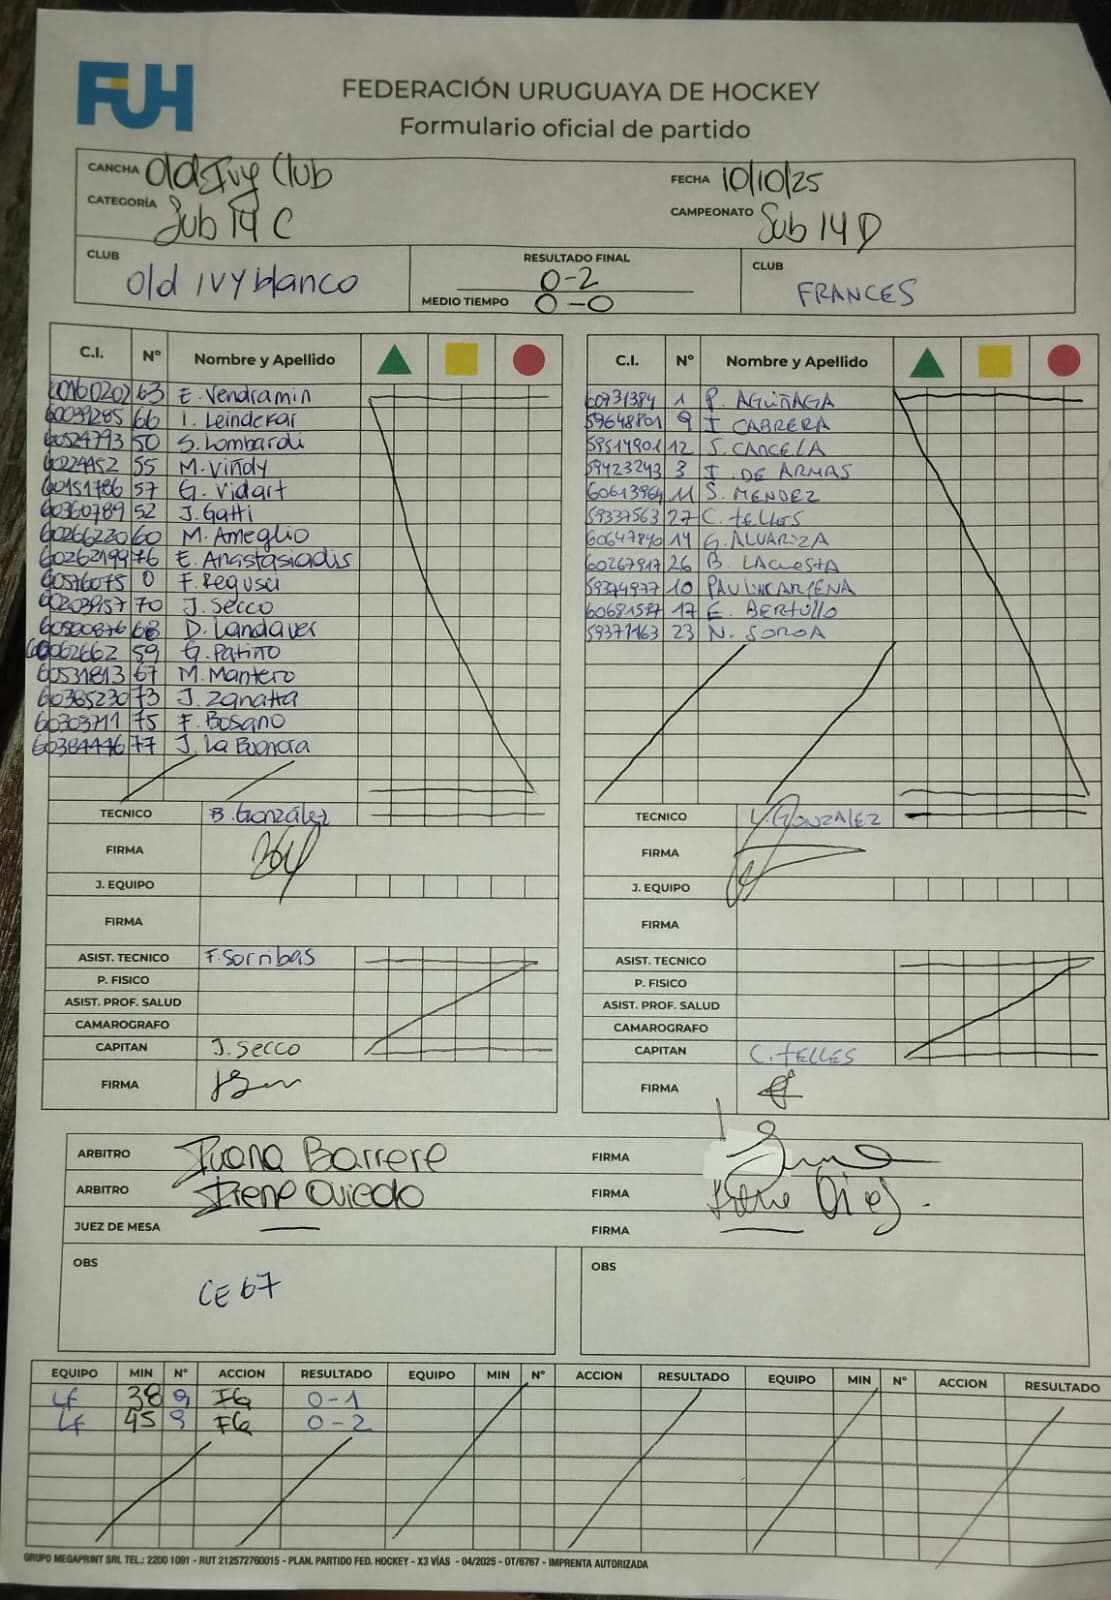 FUH
FEDERACIÓN URUGUAYA DE HOCKEY
Formulario oficial de partido
CANCHA Old Ivy Club FECHA 10/10/25
CATEGORÍA Sub 14 C CAMPEONATO Sub 14 D
CLUB Old IVY blanco RESULTADO FINAL 0-2 CLUB FRANCES
MEDIO TIEMPO 0-0
C.I. Nº Nombre y Apellido C.I. Nº Nombre y Apellido
63 E. Vendramin 1 P. AGUIÑAGA
60039285 66 I. Leindekar 59648801 9 I CABRERA
60524793 50 S. Lombardi 59514901 12 S. CANCELA
60224452 55 M. Viñoly 59423243 3 I. DE ARMAS
60151786 57 G. Vidart 60613964 11 S. MENDEZ
60360789 52 J. Gatti 59337563 27 C. tELLES
60266220 60 M. Ameglio 60647840 14 G. ALVARIZA
60262199 76 E. Anastasiadis 60267917 26 B. LACUESTA
60576075 0 F. Regusci 59374977 10
60203957 70 J. Secco 60681587 17 E. BERTULLO
68 D. Landaver 59371163 23 N. SOROA
60062662 59 G. Patiño
60531813 67 M. Mantero
60385230 73 J. Zanatta
60303711 75 F. Bosano
60384446 77 J. La Buonora
TECNICO B. González TECNICO GONZALEZ
FIRMA FIRMA
J. EQUIPO J. EQUIPO
FIRMA FIRMA
ASIST. TECNICO F. Sorribas ASIST. TECNICO
P. FISICO P. FISICO
ASIST. PROF. SALUD ASIST. PROF. SALUD
CAMAROGRAFO CAMAROGRAFO
CAPITAN J. Secco CAPITAN C. tELLES
FIRMA FIRMA
ARBITRO Juana Barrere FIRMA
ARBITRO Irene Oviedo FIRMA
JUEZ DE MESA FIRMA
OBS CE 67 OBS
EQUIPO MIN Nº ACCION RESULTADO EQUIPO MIN Nº ACCION RESULTADO EQUIPO MIN Nº ACCION RESULTADO
LF 38 9 FG 0-1
LF 45 9 FG 0-2
GRUPO MEGAPRINT SRL TEL.: 2200 1091 - RUT 212572760015 - PLAN. PARTIDO FED. HOCKEY - X3 VÍAS - 04/2025 - OT/6767 - IMPRENTA AUTORIZADA